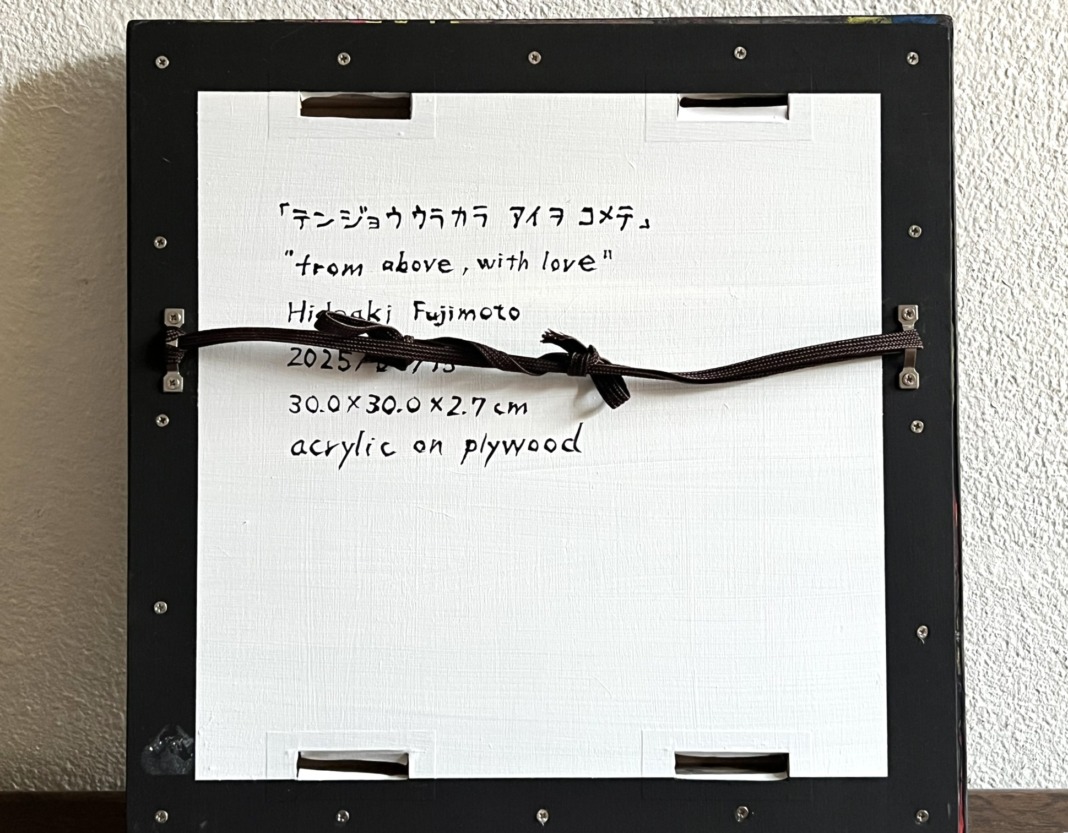 「テンジョウウラカラ アイヲ コメテ」
"from above, with love"
Fujimoto
30.0×30.0×2.7cm
acrylic on plywood